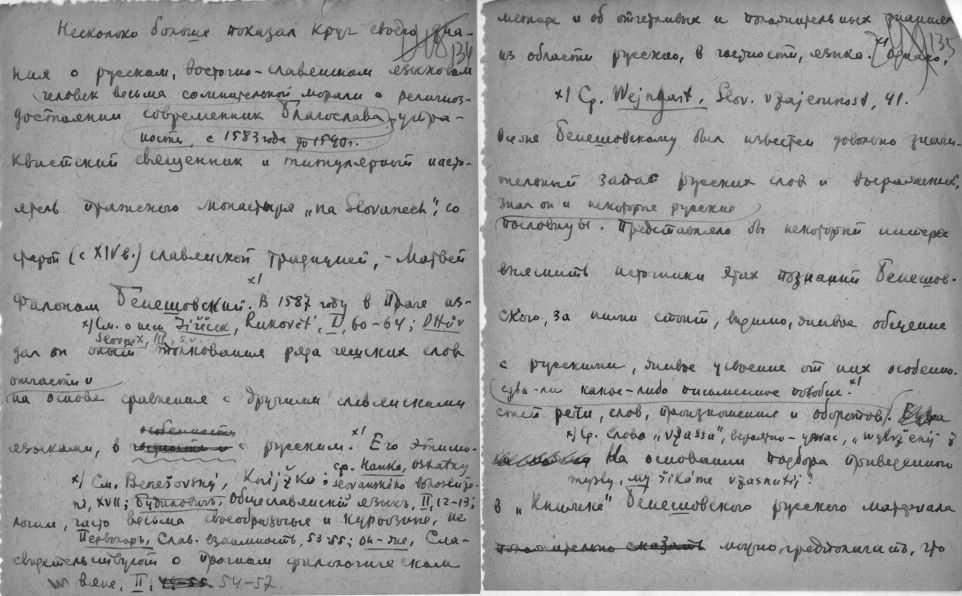 134
Несколько больше показал круг своего зна-
ния о русском, восточно-славянском языковом
человек весьма сомнительной морали и религиоз-
достоянии современник Благослава, утра-
ности, с 1583 года до 1590г.
квистский священник и титулярный насто-
ятель пражского монастыря „na Slovanech", со
старой (с XIV в.) славянской традицией, - Матвей
Филоном Бенешовский. x) В 1587 году в Праге из-
x) См. о нем Jireček, Rukověť, I, 60-64;
Slovník, III, s.v.
дал он опыт толкования ряда чешских слов
отчасти
на основе сравнения с другими славянскими
особенности
языками, в частности с русским. x) Его этимо-
x) См. Benešovský, Knížka; ср. Hanka,
XVII; Будилович, Общеславянский язык, II, 12-13;
логии, часто весьма своеобразные и курьозные, не
Первольф, Слав. взаимность, 53-55; он-же, Сла-
свидетельствуют о прочном филологическом
вяне, II, 54-57.
135
методе и об отчетливых и положительных знаниях
из области русского, в частности, языка. x) Однако,
x) Ср. Weingart, Slov. vzájemnost, 41.
Бенешовскому был известен довольно значи-
тельный запас русских слов и выражений,
знал он и некоторые русские
пословицы. Представляло бы некоторый интерес
выяснить источники этих познаний Бенешов-
ского, за ними стоит, видимо, живое общение
с русскими, живое усвоение от них особенно-
едва-ли какое-либо письменное пособие. x)
стей речи, слов, произношения и оборотов.
x) Ср. слова „vžassa", вероятно - ужас,
На основании подбора приведенного
my říkáme vžasnutí?
в „Книжке" Бенешовского русского материала
положительно сказать можно предполагать, что